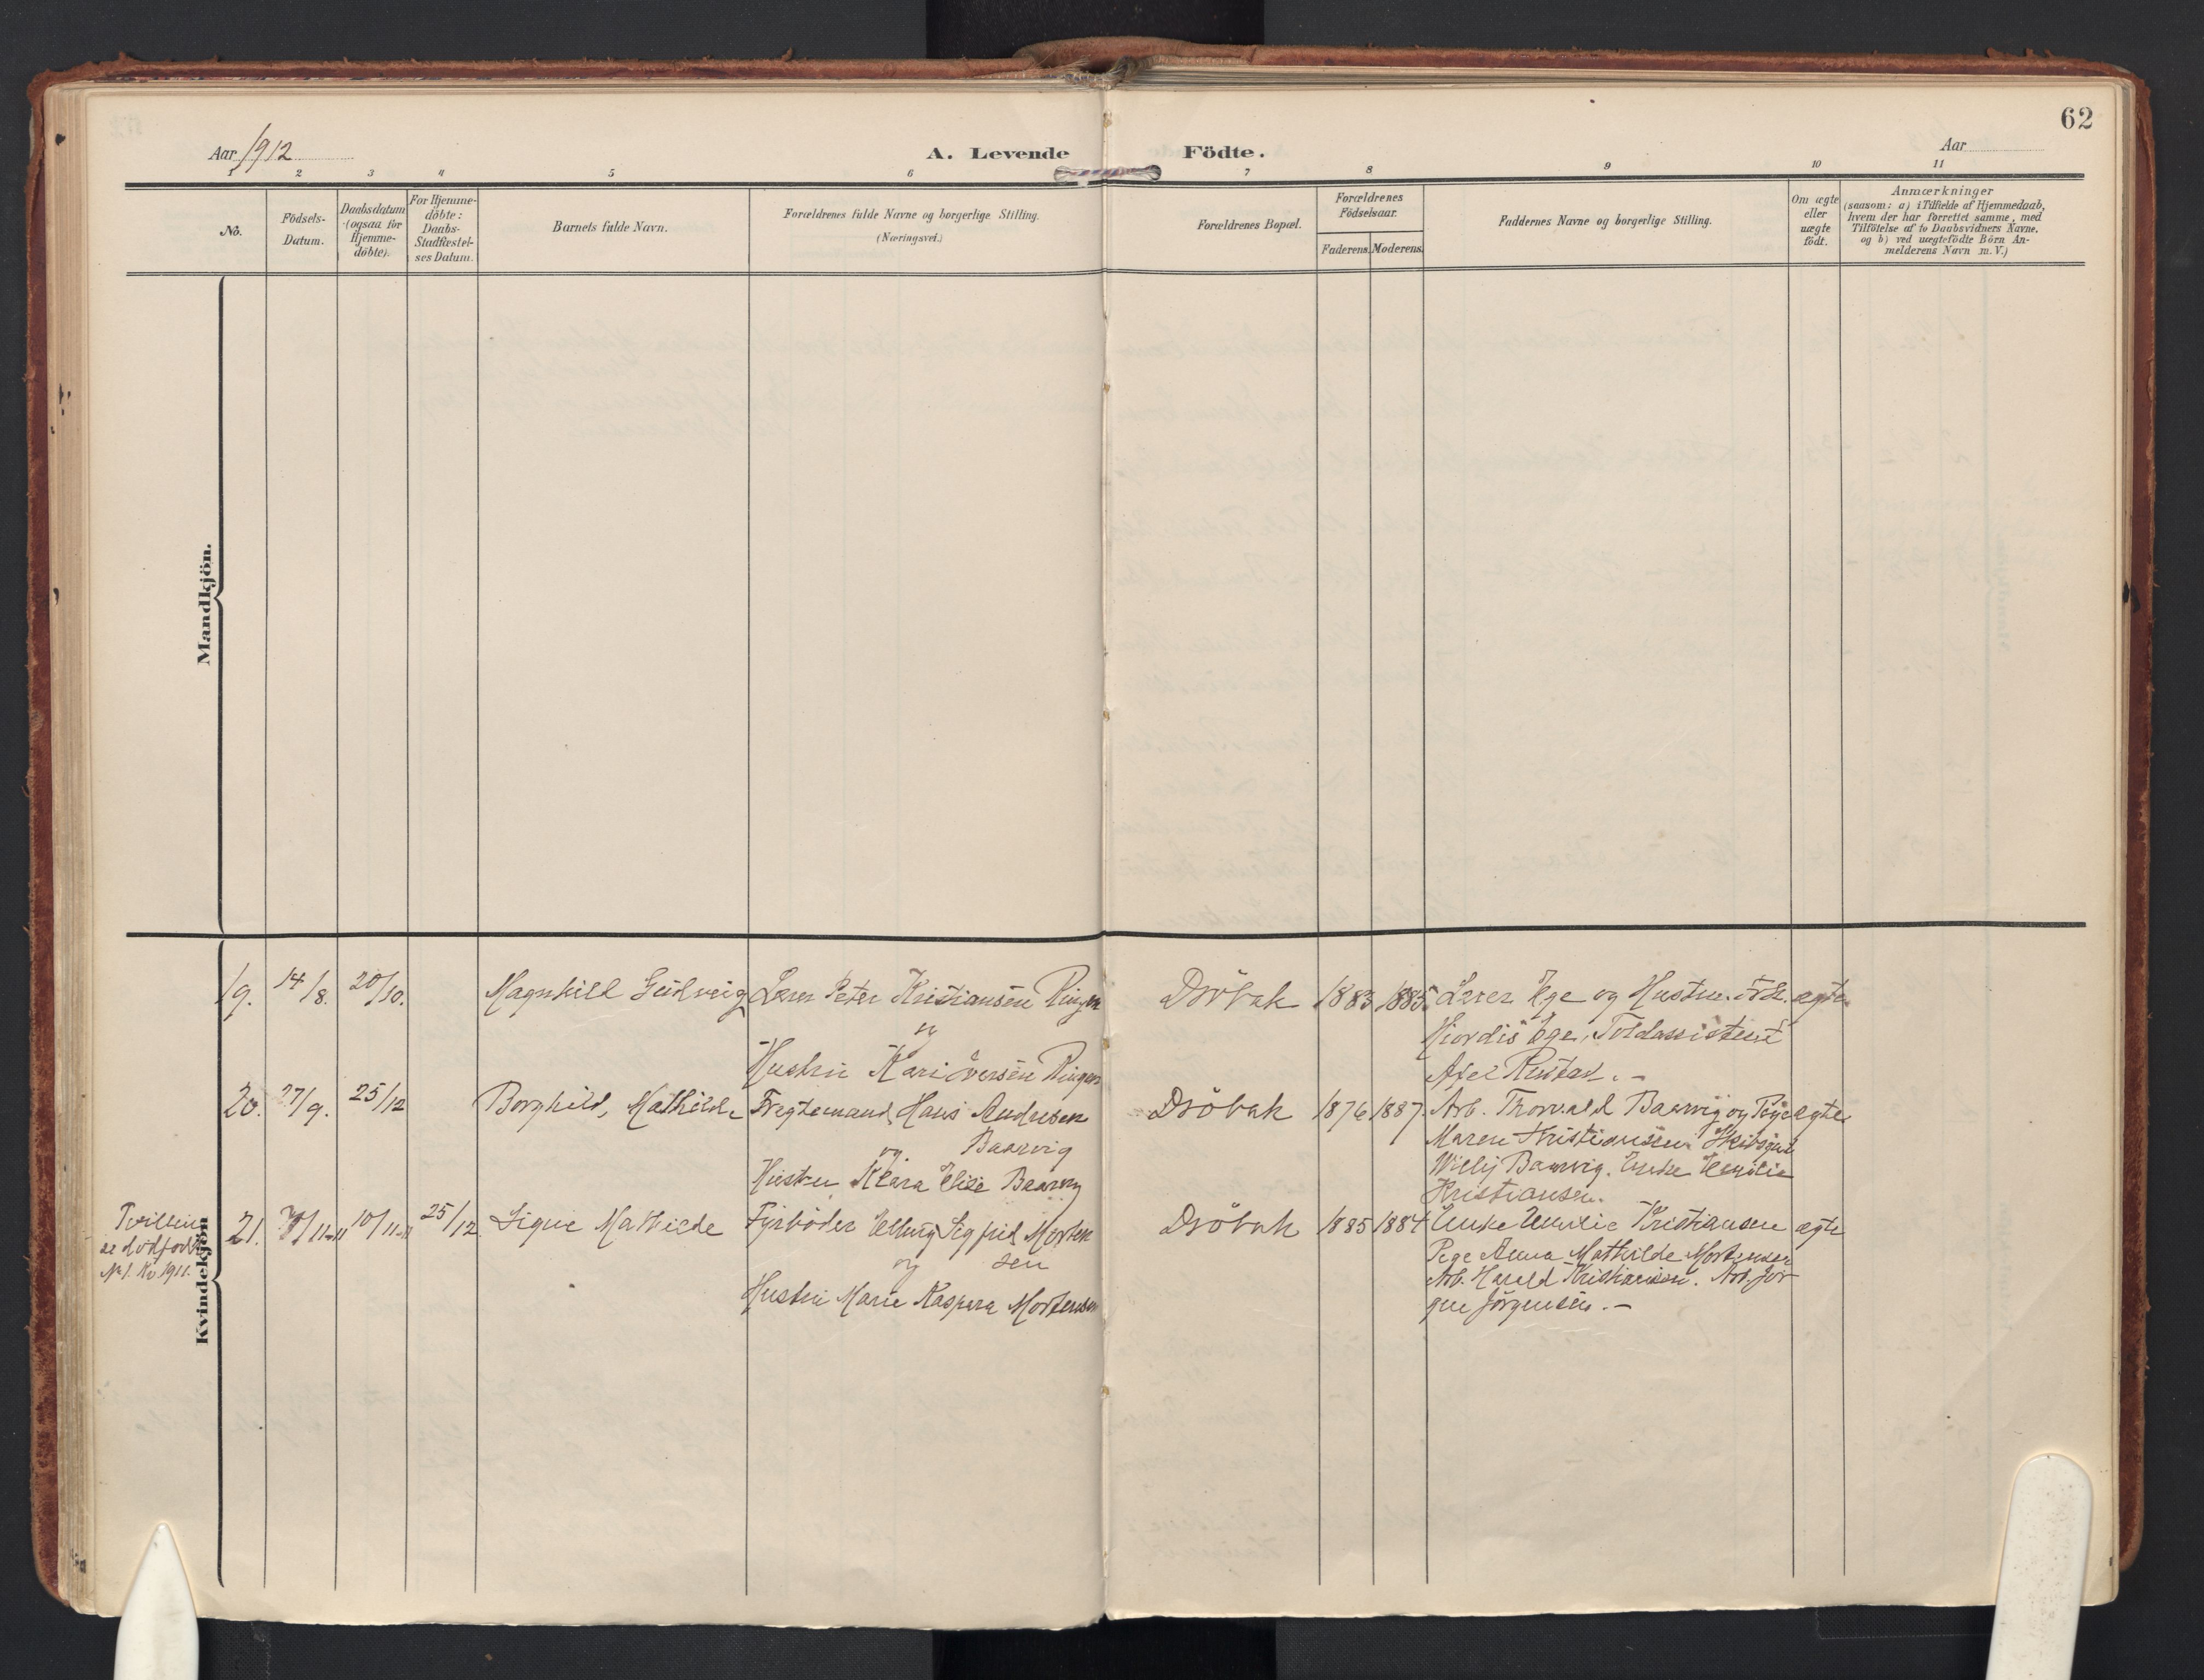 62
Aar 1912
A. Levende Födte.
Aar
1 2 3 4 5 6 7 8 9 10 11
No.
Födsels-
Datum.
Daabsdatum
(ogsaa for
Hjemme-
döbte).
For Hjemme-
döbte:
Daabs-
Stadfæstel-
ses Datum.
Barnets fulde Navn.
Forældrenes fulde Navne og borgerlige Stilling.
(Næringsvei.)
Forældrenes Bopæl.
Forældrenes
Födselsaar.
Faderens. Moderens.
Faddernes Navne og borgerlige Stilling.
Om ægte
eller
uægte
födt.
Anmærkninger
(saasom: a) i Tilfælde af Hjemmedaab,
hvem der har forrettet samme, med
Tilföielse af to Daabsvidners Navne,
og b) ved uægtefödte Börn An-
melderens Navn m.V.)
Mandkjön.
Kvindekjön
19. 14/8. 20/10. Magnhild Gudveig
Lærer Peter Kristiansen Ringen
og
Hustru Kari Iversen Ringen
Dröbak 1883 1885
Lærer Ege og Hustru. Frk.
Hjordis Ege, Toldassistent
Axel Rustad. -
ægte
20. 27/9. 25/12 Borghild, Mathilde
Fregtemand Hans Andersen
og Baarvig
Hustru Klara Elise Baarvig
Dröbak 1876 1887
Arb. Thorvald Baarvig og Pige
Maren Kristiansen.
Willy Baarvig. Enke Emilie
Kristiansen.
ægte
Tvilling
er dödfödt
No 1. Kv. 1911.
21. /11-11 10/11-11 25/12 Signe Mathilde
Fyrböder Elling Sigfrid Morten
og sen
Hustru Marie Kaspara Mortensen
Dröbak 1885 1884
Enke Emilie Kristiansen
Pige Anna Mathilde Mortensen
Arb. Harald Kristiansen. Arb. Jör
gen Jörgensen. -
ægte